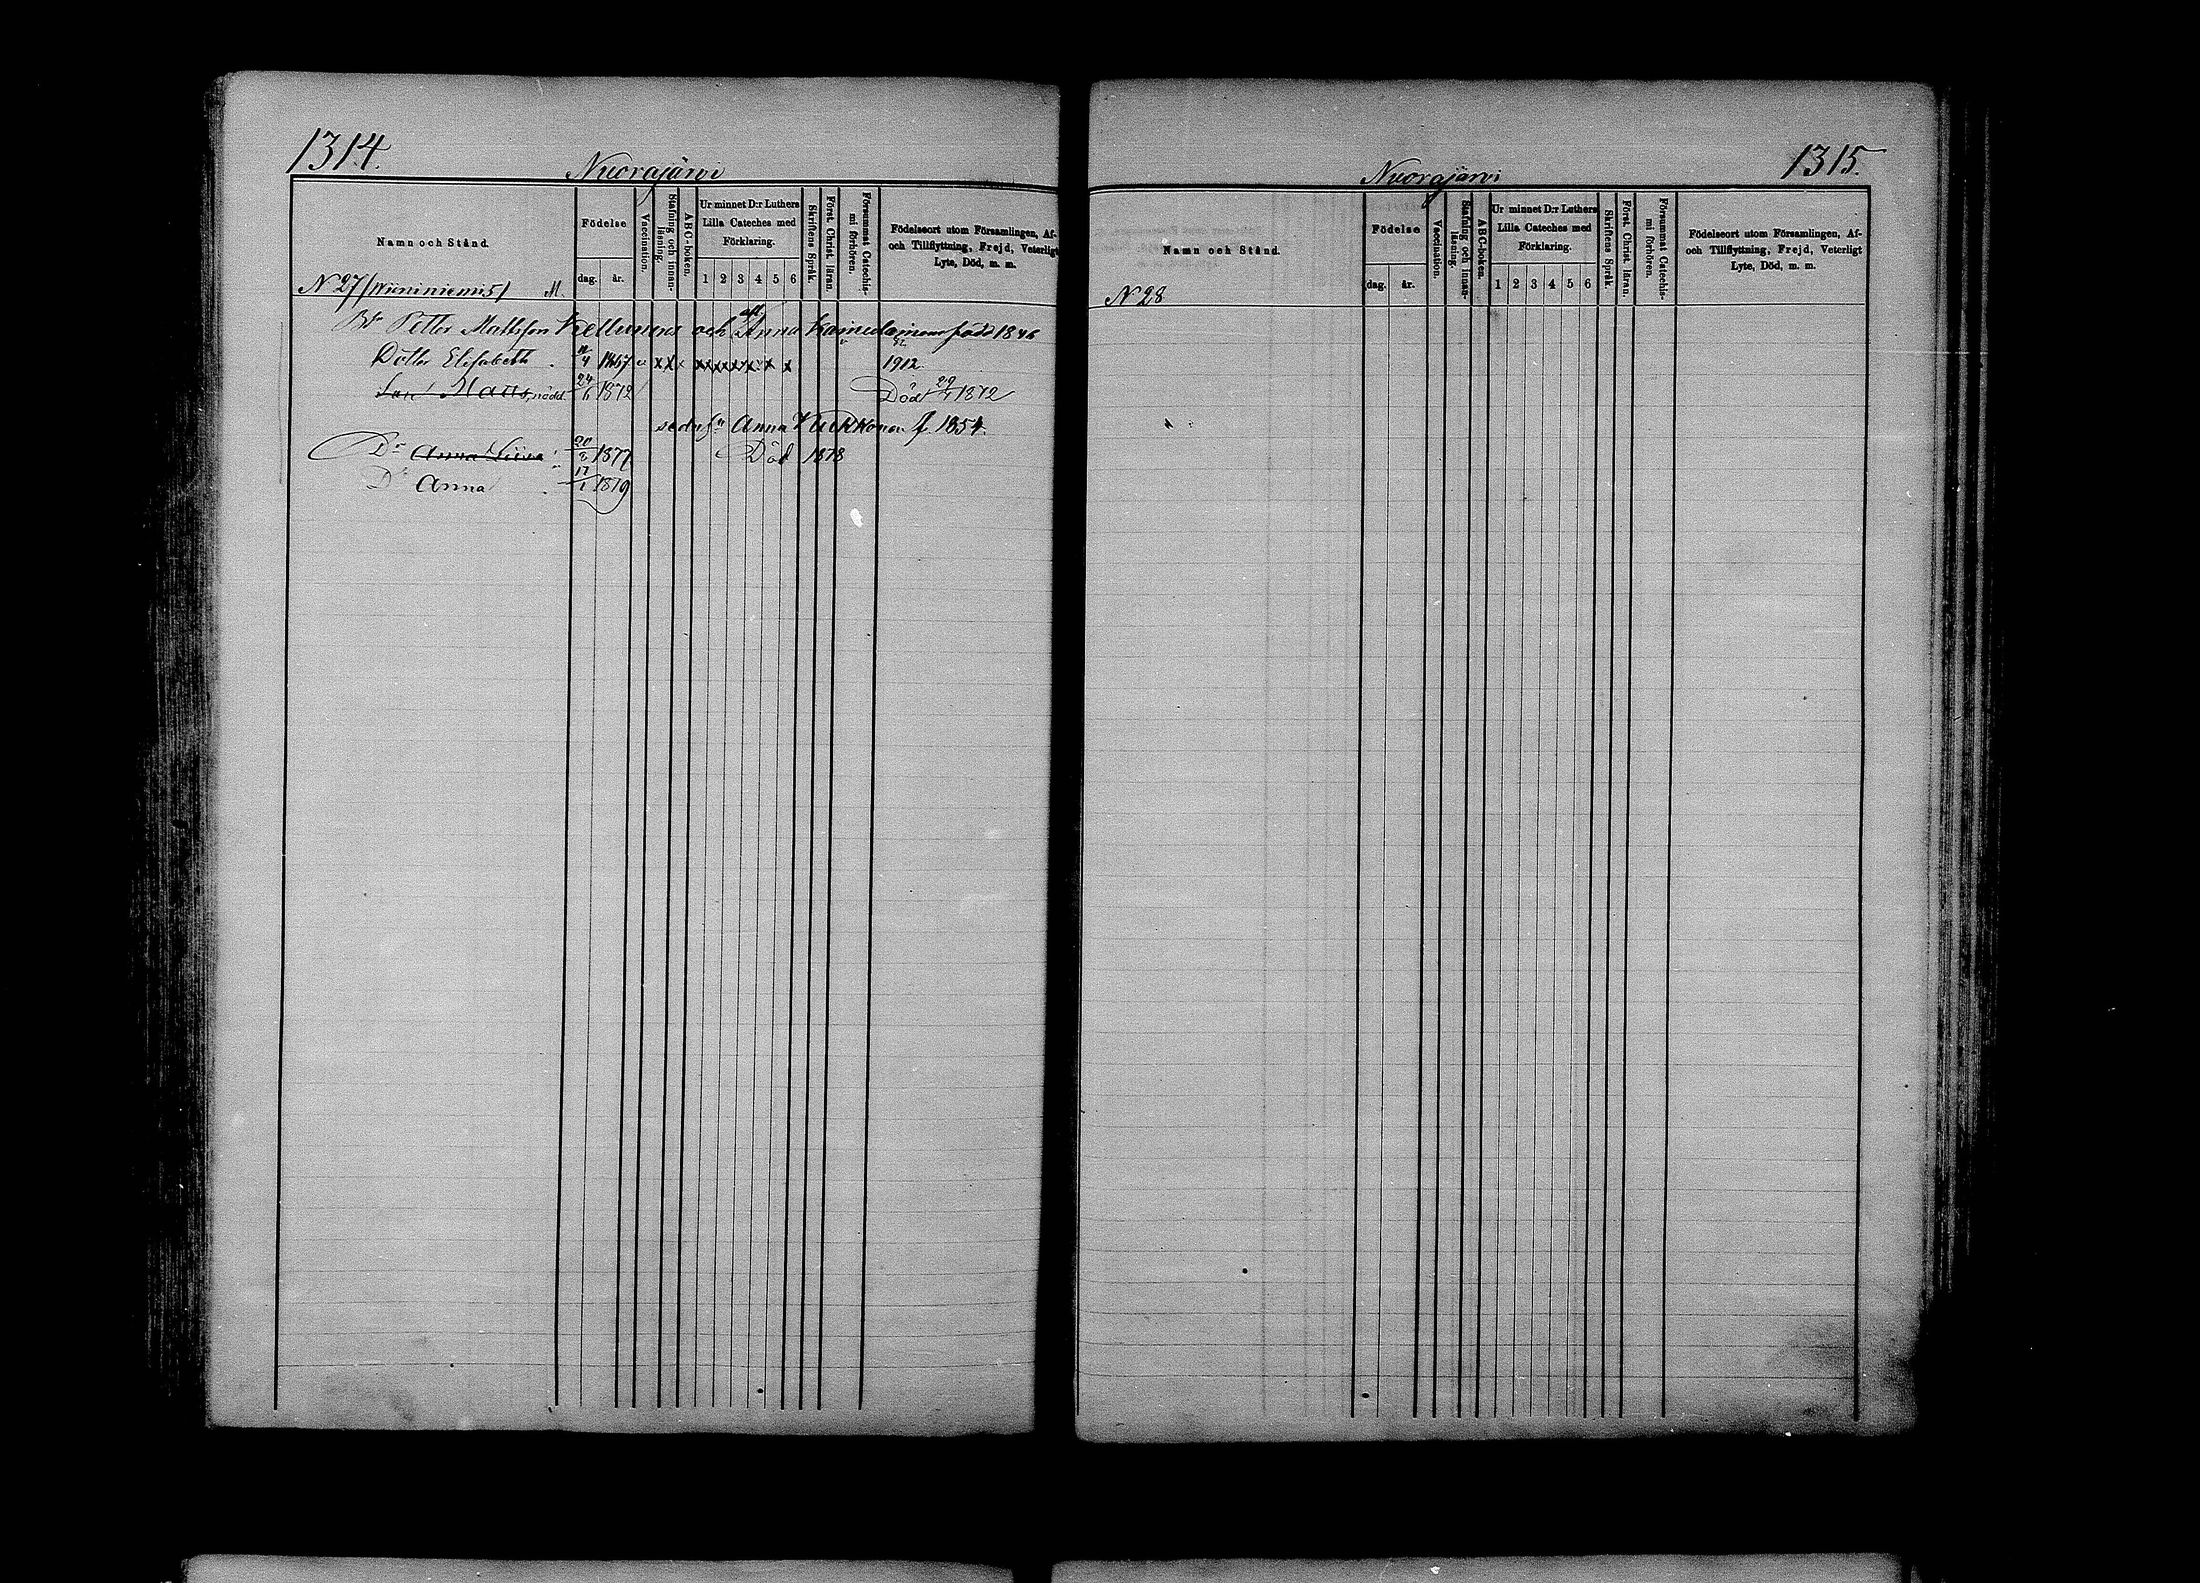 1314.
Nuorajärvi
Namn och Stånd.
Födelse
dag. år.
Vaccination.
Stafning och innanläsning.
ABC-boken.
Ur minnet D:r Luthers Lilla Cateches med Förklaring.
1 2 3 4 5 6
Skriftens Språk.
Först. Christ. läran.
Försummat Catechismi förhören.
Födelseort utom Församlingen, Af- och Tillflyttning, Frejd, Veterligt Lyte, Död, m. m.
N 27 /Niininiemi 5/ M.
Petter Mattsson Kellunen och Anna född 1846
Dotter Elisabeth 1867 v x x x x x x x x x 1912
Son Matts, nödd. 24/6 1872 Död 29/ 1872
sedn Anna Kukkonen f. 1854.
Dr Anna Liisa 20/8 1877 Död 1878
Dr Anna 17/1 1879
1315.
Nuorajärvi
Namn och Stånd.
Födelse
dag. år.
Vaccination.
Stafning och innanläsning.
ABC-boken.
Ur minnet D:r Luthers Lilla Cateches med Förklaring.
1 2 3 4 5 6
Skriftens Språk.
Först. Christ. läran.
Försummat Catechismi förhören.
Födelseort utom Församlingen, Af- och Tillflyttning, Frejd, Veterligt Lyte, Död, m. m.
N 28